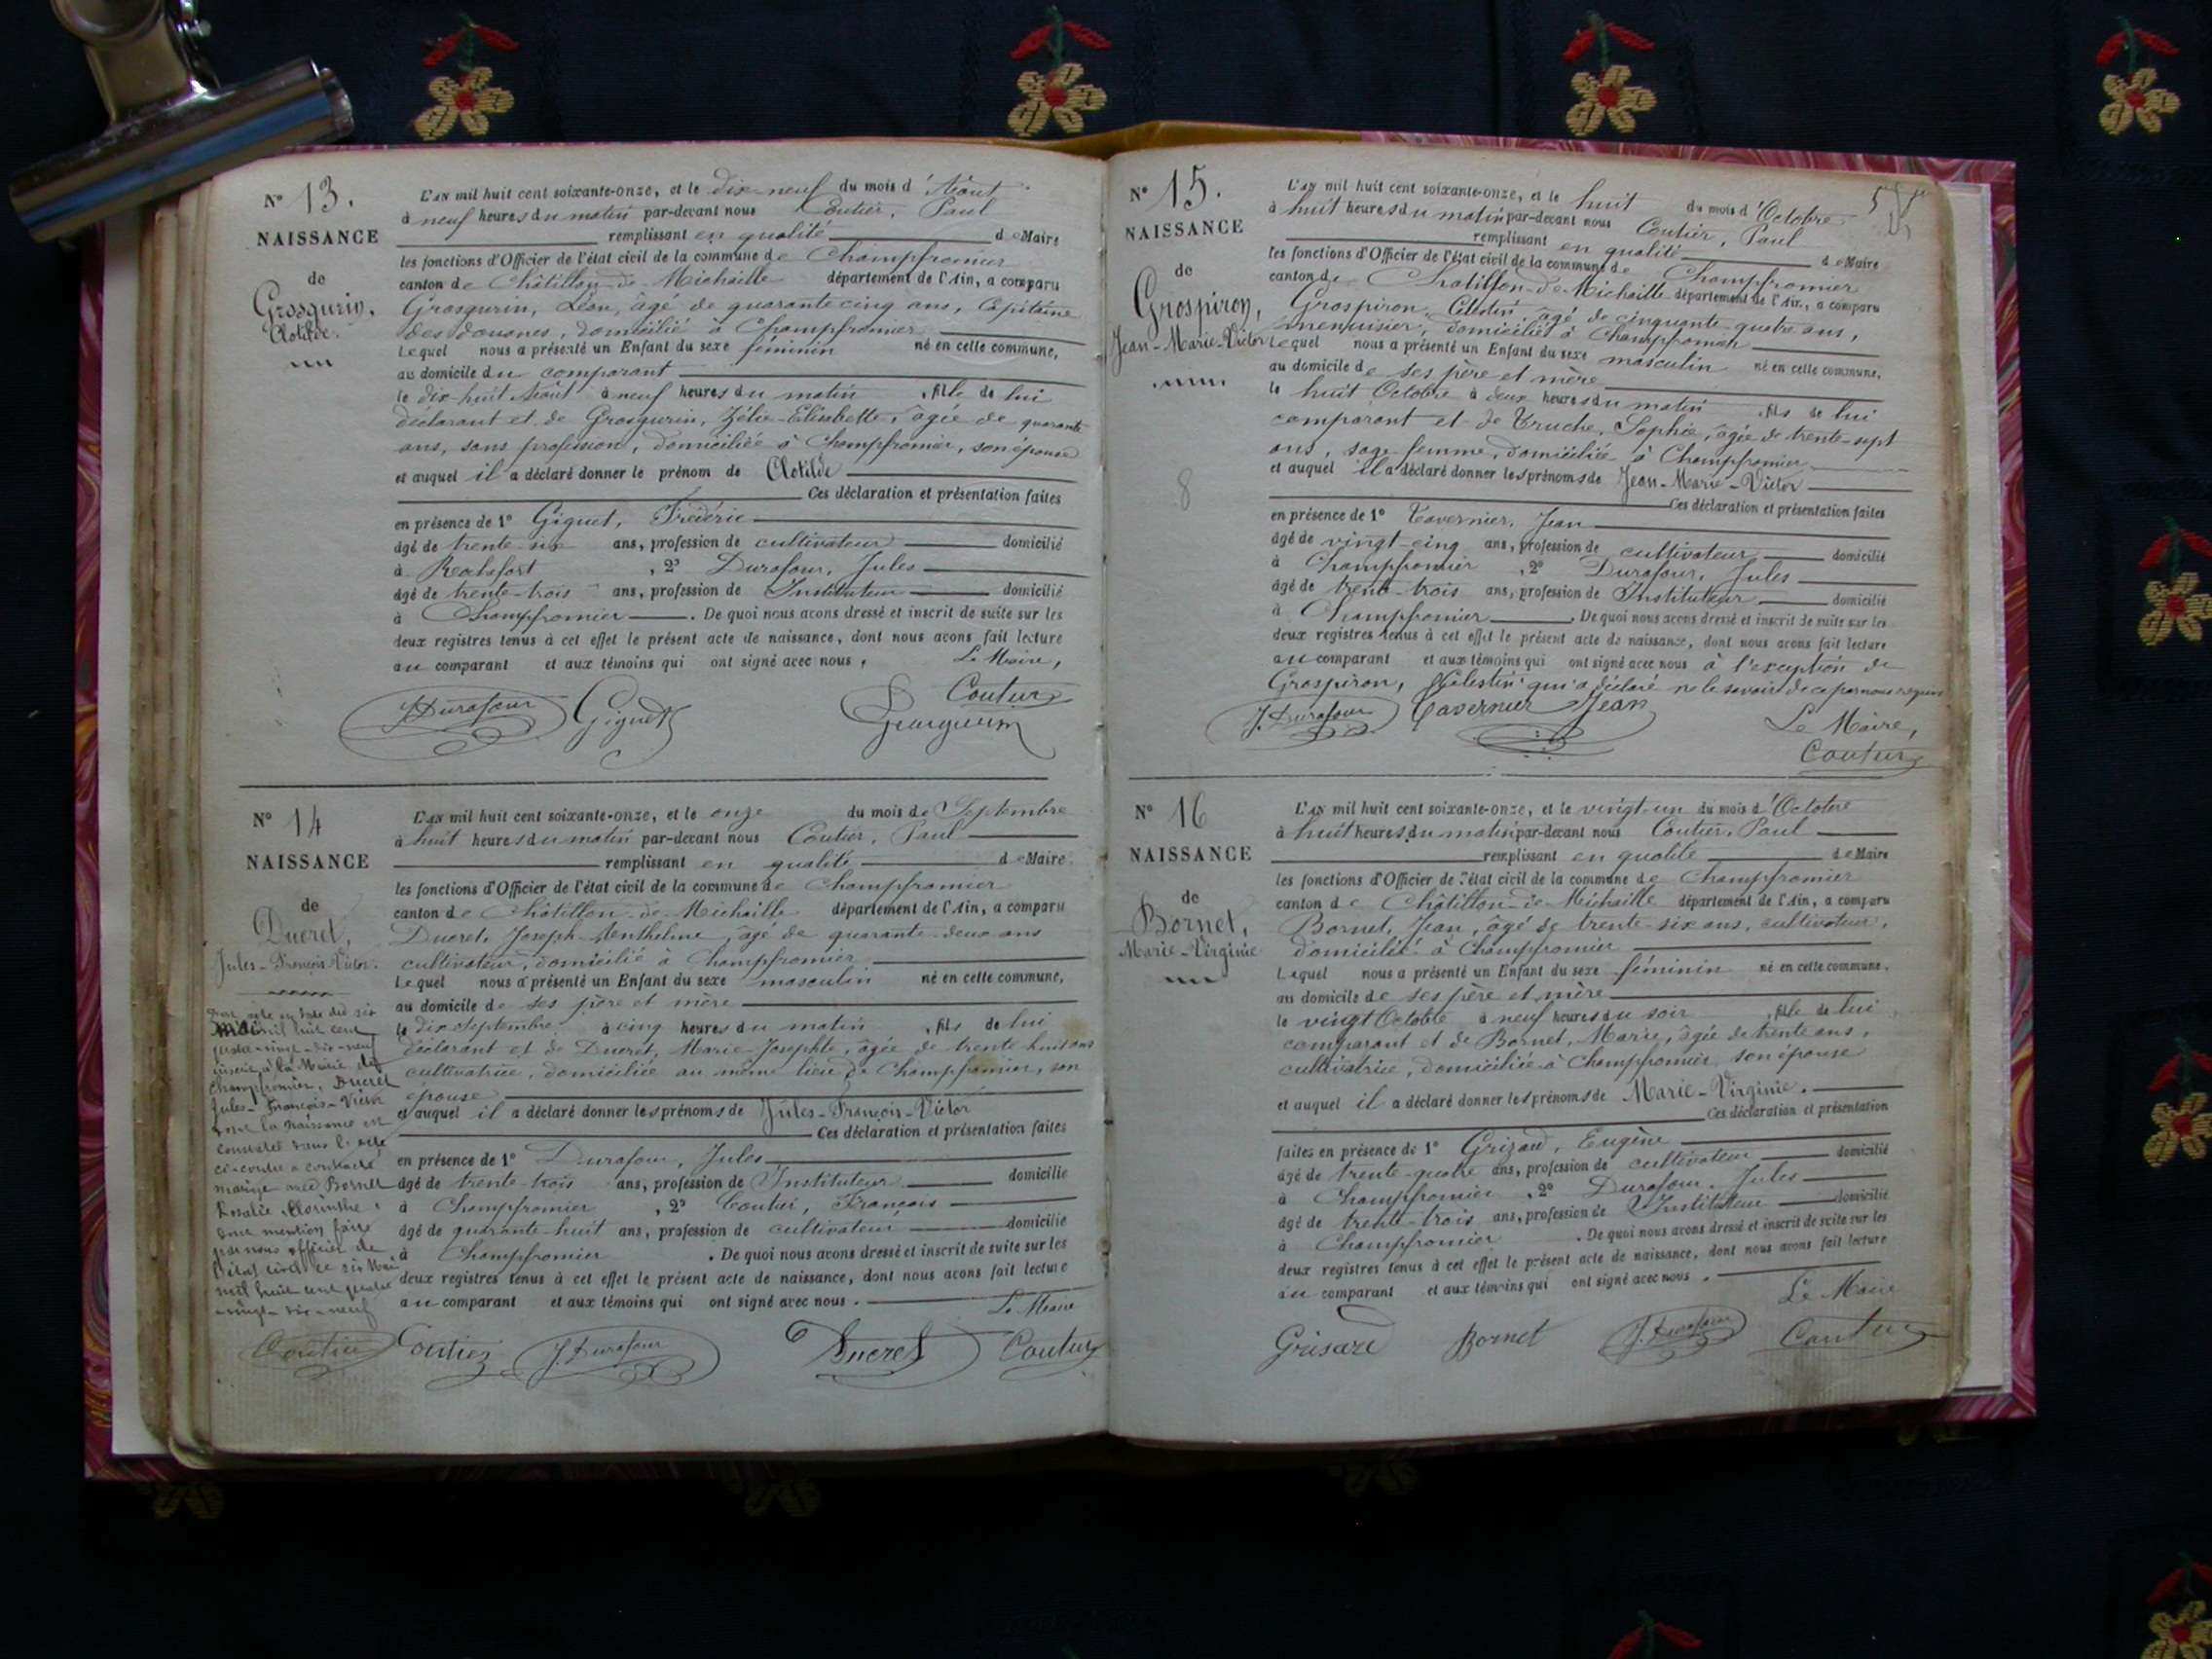 N° 13.
NAISSANCE
de
Grosgurin,
Clotilde.
L'AN mil huit cent soixante-onze, et le dix-neuf du mois d'Août
à neuf heures du matin par-devant nous Coutier, Paul
remplissant en qualité de Maire
les fonctions d'Officier de l'état civil de la commune de Champfromier
canton de Châtillon-de-Michaille département de l'Ain, a comparu
Grosgurin, Léon, âgé de quarante cinq ans, Capitaine
des douanes, domicilié à Champfromier
Lequel nous a présenté un Enfant du sexe féminin né en cette commune,
au domicile du comparant
le dix-huit Août à neuf heures du matin, fille de lui
déclarant et de Grosgurin, Zélie-Elisabette, âgée de quarante
ans, sans profession, domiciliée à Champfromier, son épouse
et auquel il a déclaré donner le prénom de Clotilde
Ces déclaration et présentation faites
en présence de 1° Giguet, Frédéric
âgé de trente-six ans, profession de cultivateur domicilié
à Rochefort, 2° Durafour, Jules
âgé de trente-trois ans, profession de Instituteur domicilié
à Champfromier. De quoi nous avons dressé et inscrit de suite sur les
deux registres tenus à cet effet le présent acte de naissance, dont nous avons fait lecture
au comparant et aux témoins qui ont signé avec nous, Le Maire,
J. Durafour Giguet Coutier
Grosgurin
N° 14
NAISSANCE
de
Ducret,
Jules-François-Victor.
L'AN mil huit cent soixante-onze, et le onze du mois de Septembre
à huit heures du matin par-devant nous Coutier, Paul
remplissant en qualité de Maire
les fonctions d'Officier de l'état civil de la commune de Champfromier
canton de Châtillon-de-Michaille département de l'Ain, a comparu
Ducret, Joseph âgé de quarante-deux ans
cultivateur, domicilié à Champfromier
Lequel nous a présenté un Enfant du sexe masculin né en cette commune,
au domicile de ses père et mère
le dix Septembre à cinq heures du matin, fils de lui
déclarant et de Ducret, Marie-Josephte, âgée de trente huit ans
cultivatrice, domiciliée au même lieu de Champfromier, son
épouse
et auquel il a déclaré donner les prénoms de Jules-François-Victor
Ces déclaration et présentation faites
en présence de 1° Durafour, Jules
âgé de trente-trois ans, profession de Instituteur domicilié
à Champfromier, 2° Coutier, François
âgé de quarante-huit ans, profession de cultivateur domicilié
à Champfromier. De quoi nous avons dressé et inscrit de suite sur les
deux registres tenus à cet effet le présent acte de naissance, dont nous avons fait lecture
au comparant et aux témoins qui ont signé avec nous. Le Maire
acte en date du six
mai mil huit cent
quatre-vingt-dix-neuf
inscrit à la Mairie de
Champfromier, Ducret
Jules-François-Victor
dont la naissance est
constatée dans l'acte
ci-contre a contracté
mariage avec Bornet
Rosalie
dont mention faite
par nous officier de
l'état civil le six Mai
mil huit cent quatre
-vingt-dix-neuf
Coutier Coutier J. Durafour Ducret Coutier
N° 15.
NAISSANCE
de
Grospiron,
Jean-Marie-Victor
8
L'AN mil huit cent soixante-onze, et le huit du mois d'Octobre
à huit heures du matin par-devant nous Coutier, Paul
remplissant en qualité de Maire
les fonctions d'Officier de l'état civil de la commune de Champfromier
canton de Chatillon-de-Michaille département de l'Ain, a comparu
Grospiron, Célestin, âgé de cinquante-quatre ans,
menuisier, domicilié à Champfromier
Lequel nous a présenté un Enfant du sexe masculin né en cette commune,
au domicile de ses père et mère
le huit Octobre à deux heures du matin, fils de lui
comparant et de Truche, Sophie, âgée de trente-sept
ans, sage-femme, domiciliée à Champfromier
et auquel il a déclaré donner les prénoms de Jean-Marie-Victor
Ces déclaration et présentation faites
en présence de 1° Tavernier, Jean
âgé de vingt-cinq ans, profession de cultivateur domicilié
à Champfromier, 2° Durafour, Jules
âgé de trente-trois ans, profession de Instituteur domicilié
à Champfromier. De quoi nous avons dressé et inscrit de suite sur les
deux registres tenus à cet effet le présent acte de naissance, dont nous avons fait lecture
au comparant et aux témoins qui ont signé avec nous à l'exception de
Grospiron, Célestin qui a déclaré ne le savoir de ce par nous requis
J. Durafour Tavernier Jean Le Maire,
Coutier
N° 16
NAISSANCE
de
Bornet,
Marie-Virginie
L'AN mil huit cent soixante-onze, et le vingt-un du mois d'Octobre
à huit heures du matin par-devant nous Coutier, Paul
remplissant en qualité de Maire
les fonctions d'Officier de l'état civil de la commune de Champfromier
canton de Châtillon-de-Michaille département de l'Ain, a comparu
Bornet, Jean, âgé de trente-six ans, cultivateur,
domicilié à Champfromier
Lequel nous a présenté un Enfant du sexe féminin né en cette commune,
au domicile de ses père et mère
le vingt Octobre à neuf heures du soir, fille de lui
comparant et de Bornet, Marie, âgée de trente ans,
cultivatrice, domiciliée à Champfromier son épouse
et auquel il a déclaré donner les prénoms de Marie-Virginie.
Ces déclaration et présentation
faites en présence de 1° Grizard, Eugène
âgé de trente-quatre ans, profession de cultivateur domicilié
à Champfromier, 2° Durafour, Jules
âgé de trente-trois ans, profession de Instituteur domicilié
à Champfromier. De quoi nous avons dressé et inscrit de suite sur les
deux registres tenus à cet effet le présent acte de naissance, dont nous avons fait lecture
au comparant et aux témoins qui ont signé avec nous.
Le Maire
Grisard Bornet J. Durafour Coutier